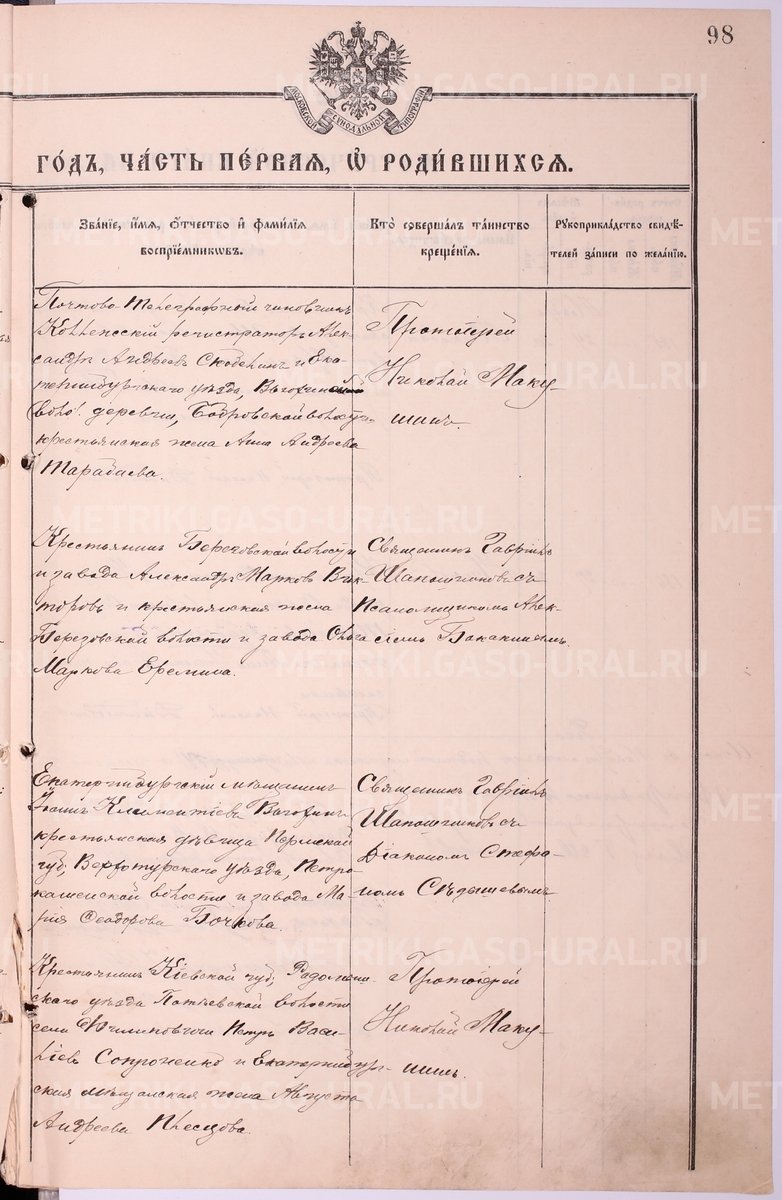 98
МОСКОВСКОЙ СѴНОДАЛЬНОЙ ТИПОГРАФІИ
ГО́ДЪ, ЧА́СТЬ ПЕ́РВАЯ, Ѽ РОДИ́ВШИХСЯ.
Зва́нїе, и́мя, ѻ́тчество и҆ фами́лїя
воспрїе́мникѡвъ.
Кто̀ соверша́лъ та́инство
креще́нїя.
Рꙋкоприкла́дство свидѣ́-
телей за́писи по жела́нїю.
Почтово Телеграфный чиновникъ
Коллежскій регистраторъ Алек-
сандръ Андреевъ Скобелинъ и Ека-
теринбургскаго уѣзда,
деревни, Бобровской волости
крестьянская жена Анна Андреева
Тарабаева.
Протоіерей
Николай Маку-
шинъ.
Крестьянинъ Березовской волости
и завода Александръ Марковъ Вик-
торовъ и крестьянская жена
Березовской волости и завода Ольга
Маркова Еремина.
Священникъ Гавріилъ
Шапошниковъ съ
Псаломщикомъ Алек-
сіемъ Бакакинымъ.
Екатеринбургскій мѣщанинъ
Іоаннъ Климентіевъ Вагогинъ
крестьянская дѣвица Пермской
губ, Верхотурскаго уѣзда, Петро
каменской волости и завода Ма-
рія Ѳеодорова Бочкова.
Священникъ Гавріилъ
Шапошниковъ съ
Діакономъ Стефа-
номъ Сѣдышевымъ
Крестьянинъ Кіевской губ, Радомы-
скаго уѣзда Потіевской волости
села Петръ Васи-
ліевъ Сопроненко и Екатеринбург-
ская мѣщанская жена Августа
Андреева Плесцова.
Протоіерей
Николай Маку-
шинъ.
METRIKI.GASO-URAL.RU